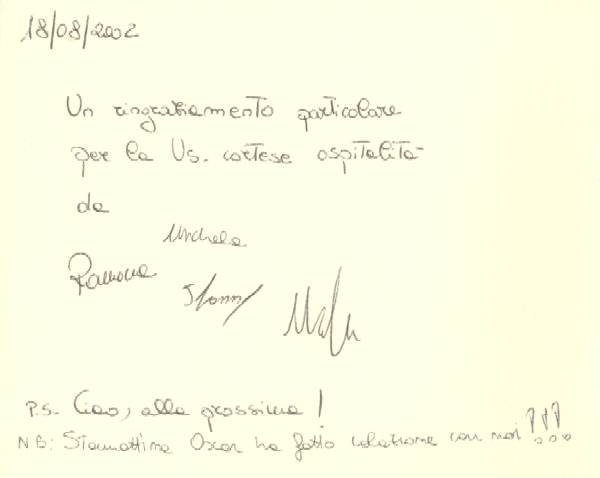 18/08/2002
Un ringraziamento particolare
per la Vs. cortese ospitalità
da
Michela
Ramona
P.S. Ciao, alla prossima!
NB: Stamattina Oscar ha fatto colazione con noi!!!